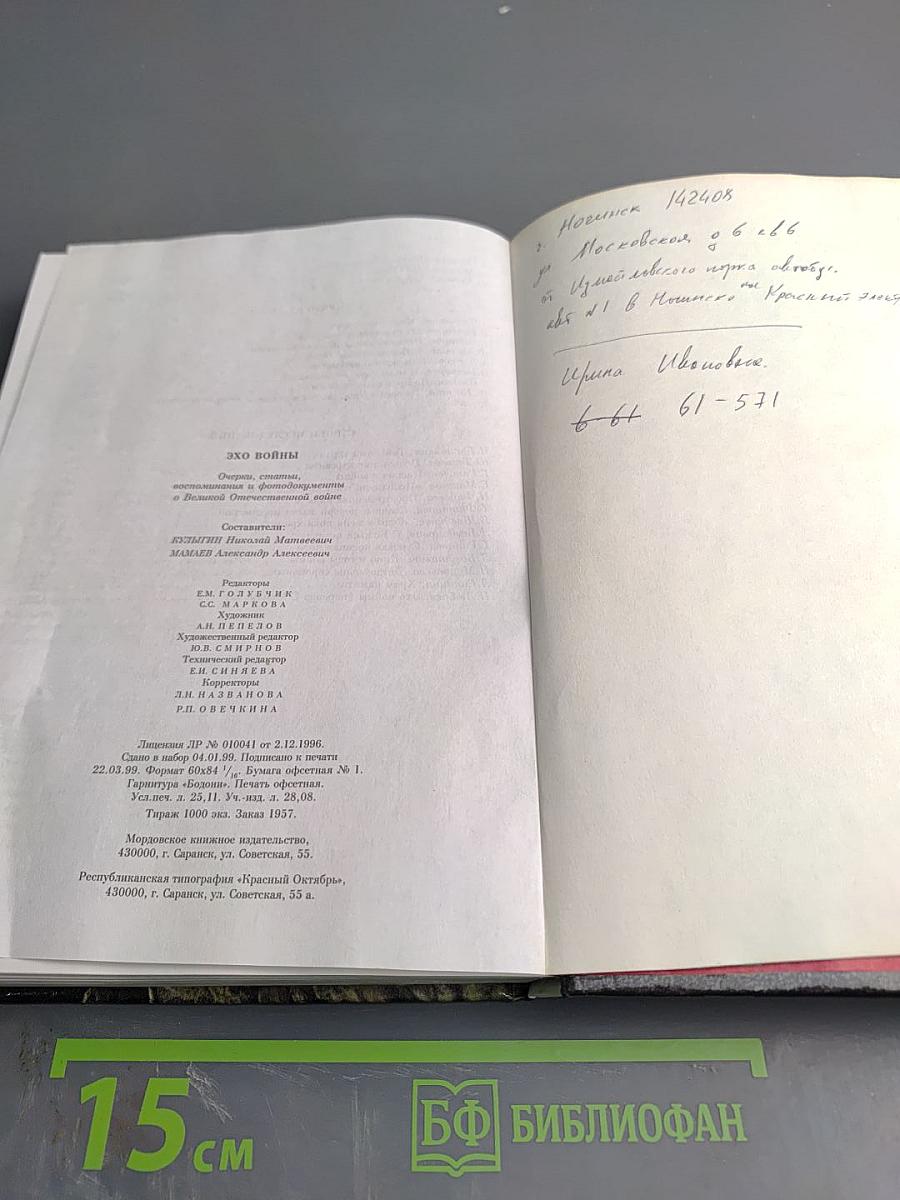 ЭХО ВОЙНЫ
Очерки, статьи,
воспоминания и фотодокументы
о Великой Отечественной войне
Составители:
КУЛЫГИН Николай Матвеевич
МАМАЕВ Александр Алексеевич
Редакторы
Е.М. ГОЛУБЧИК
С.С. МАРКОВА
Художник
А.Н. ПЕПЕЛОВ
Художественный редактор
Ю.В. СМИРНОВ
Технический редактор
Е.И. СИНЯЕВА
Корректоры
Л.Н. НАЗВАНОВА
Р.П. ОВЕЧКИНА
Лицензия ЛР № 010041 от 2.12.1996.
Сдано в набор 04.01.99. Подписано к печати
22.03.99. Формат 60х84 1/16. Бумага офсетная № 1.
Гарнитура «Бодони». Печать офсетная.
Усл.печ. л. 25,11. Уч.-изд. л. 28,08.
Тираж 1000 экз. Заказ 1957.
Мордовское книжное издательство,
430000, г. Саранск, ул. Советская, 55.
Республиканская типография «Красный Октябрь»,
430000, г. Саранск, ул. Советская, 55 а.
г. Ногинск 142408
ул Московская д 6 кв 6
от Измайловского парка автобус.
авт №1 в Ногинске Красный элект
Ирина Ивановна.
6-61 61-571
15 см
БФ БИБЛИОФАН